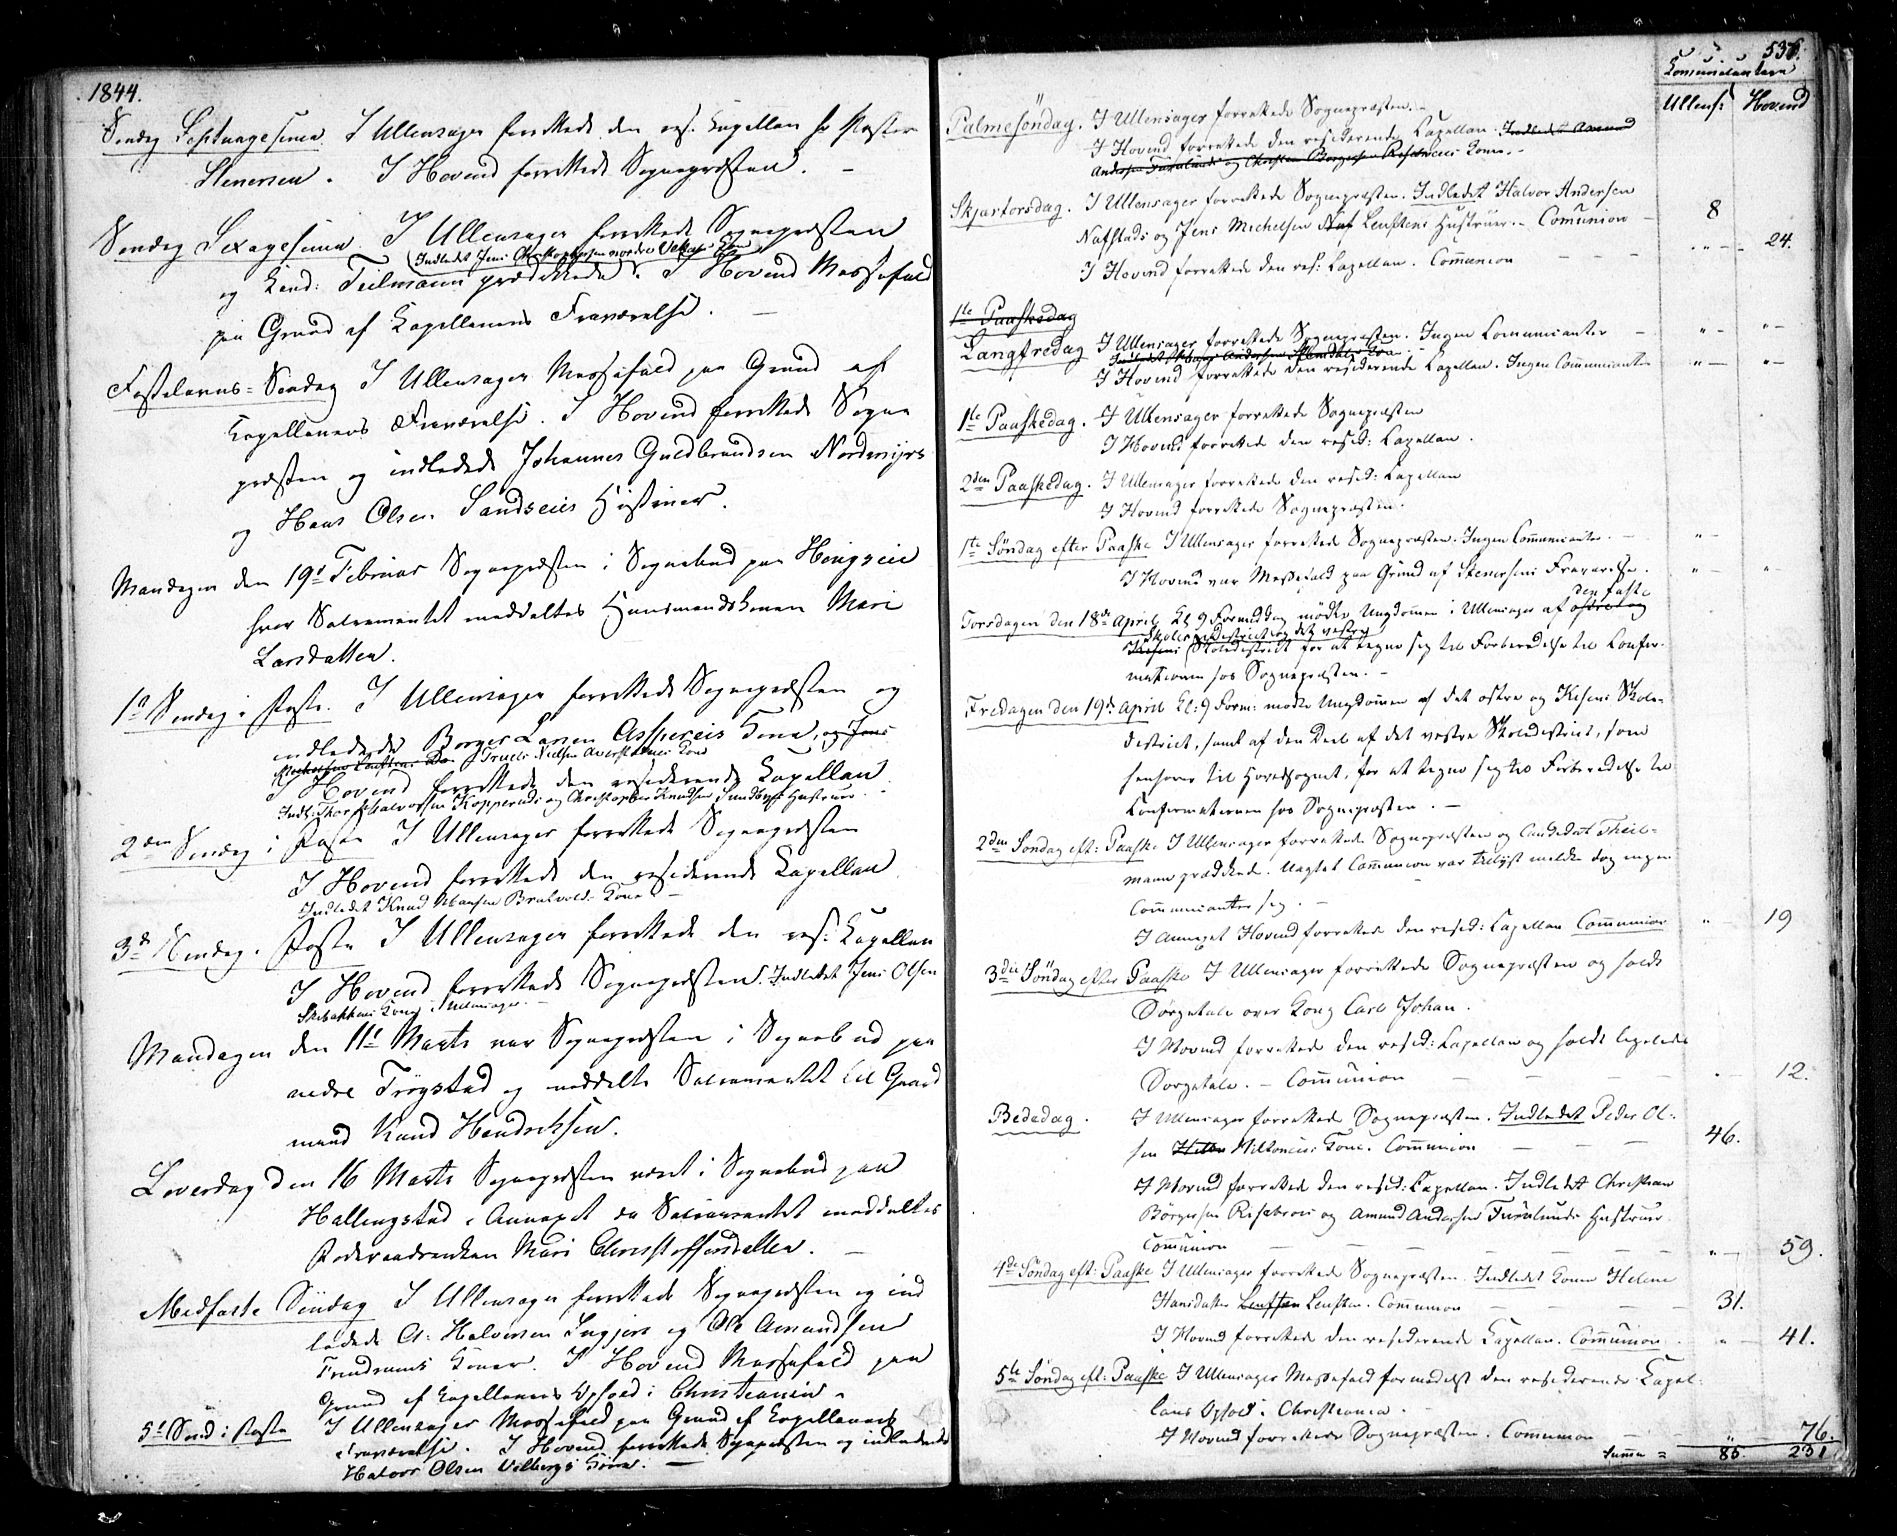 1844.
Søndag Septuagesima. I Ullensager forrettede den res. Capellan hr Pastor
Stenersen. I Hovind forrettede Sognepræsten. –
Søndag Sexagesima. I Ullensager forrettede Sognepræsten
(Indledet Jens Christophersen nordre
og Cand: Teilmann prædikede. I Hovind Messefald
paa Grund af Capellanens Fraværelse. –
Fastelavns-Søndag I Ullensager Messefald paa Grund af
Capellanens Fraværelse. I Hovind forrettede Sogne
præsten og indledede Johannes Guldbrandsen Nordmyrs
og Hans Olsen Sandseies Hustruer.
Mandagen den 19d Februar Sognepræsten i Sognebud paa
hvor Sacramentet meddeltes Huusmandskonen Mari
Larsdatter.
1ste Søndag i Faste. I Ullensager forrettede Sognepræsten og
indledede Borger Larsen Aspereies Kone, og Jens
Michelsen Lenstens Do. Truels Nielsen Kone
I Hovind forrettede den residerende Capellan.
Indl: Thor Halvorsen Kopperuds og Christopher Knudsen Sundbyes Hustruer. –
2den Søndag i Faste I Ullensager forrettede Sognepræsten
I Hovind forrettede den residerende Capellan.
Indledet Knud Hansen Bratvolds Kone –
3d Søndag i Faste I Ullensager forrettede den res: Capellan
I Hovind forrettede Sognepræsten. Indledet Jens Olsen
Skibakkens Kone i Ullensager. –
Mandagen den 11d Marts var Sognepræsten i Sognebud paa
nedre Trøgstad og meddelte Sacramentet til Gaard
mand Knud Hendriksen.
Løverdag den 16 Marts Sognepræsten været i Sognebud paa
Hallingstad i Annexet da Sacramentet meddeltes
Mari Christoffersdatter. –
Midfaste Søndag I Ullensager forrettede Sognepræsten og ind
ledede A: Halvorsen og Ole Amundsen
Koner. I Hovind Messefald paa
Grund af Capellanens Ophold i Christiania.
5t Sønd: i Faste I Ullensager Messefald paa Grund af Capellanens
Fraværelse. I Hovind forrettede Sognepræsten og indledede
Halvor Olsen Vilbergs Kone. –
536.
Comunicantere
Ullens: Hovind
Palmesøndag. I Ullensager forrettede Sognepræsten. –
I Hovind forrettede den residerende Capellan. Indledet Amund
Andersen Furulunds og Christen Børgersen Risebroeies Koner. –
Skjærtorsdag. I Ullensager forrettede Sognepræsten. Indledet Halvor Andersen
Nafstads og Jens Michelsen Naf Lenstens Hustruer. – Comunion – 8
I Hovind forrettede den res: Capellan. Comunion – – – „ – 24.
1te Paaskedag
Langfredag I Ullensager forrettede Sognepræsten. Ingen Comunicanter – „ – „ –
Indledet Andersen Kone
I Hovind forrettede den residerende Capellan. Ingen Communicanter „ – „ –
1te Paaskedag. I Ullensager forrettede Sognepræsten
I Hovind forrettede den resid: Capellan.
2den Paaskedag. I Ullensager forrettede den resid: Capellan
I Hovind forrettede Sognepræsten.
1te Søndag efter Paaske I Ullensager forrettede Sognepræsten. Ingen Communicanter. – „ –
I Hovind var Messefald paa Grund af Stenersens Fraværelse. „ – „ –
den faste
Torsdagen den 18de April Kl 9 Formiddag mødte Ungdommen i Ullensager af østre og
Skoles district og det vestre
Kisens Skoledistrict for at tegne sig til Forberedelse til Confir-
mationen hos Sognepræsten. –
Fredagen den 19de April Kl: 9 Form: mødte Ungdommen af det østre og Kisens Skole-
district, samt af den Deel af det vestre Skoledistrict, som
henhører til Hovedsognet, for at tegne sig til Forberedelse til
Confirmationen hos Sognepræsten. –
2den Søndag eft: Paaske I Ullensager forrettede Sognepræsten og Candidat Theil-
mann prædikede. Uagtet Communion var tillyst meldte dog ingen
Communicanter sig. –
I Annexet Hovind forrettede den resid: Capellan Communion „ – 19
3die Søndag efter Paaske I Ullensager forrettede Sognepræsten og holdt
Sørgetale over Kong Carl Johan.
I Hovind forrettede den resid: Capellan og holdt ligeledes
Sørgetale. – Communion – – – „ – 12.
Bededag. I Ullensager forrettede Sognepræsten. Indledet Peder Ol-
sen Kone. Communion – – – 46.
I Hovind forrettede den resid: Capellan. Indledet Christian
Børgersen Risebroeies og Amund Andersen Furulunds Hustruer.
Communion – – – – – „ – 59.
4de Søndag eft: Paaske I Ullensager forrettede Sognepræsten. Indledet Konen Helene
Hansdatter Lensten Lensten. Communion – – – 31.
I Hovind forrettede den residerende Capellan. Communion. „ – 41.
5te Søndag eft: Paaske I Ullensager Messefald formedelst den residerende Capel-
lans Ophold i Christiania.
I Hovind forrettede Sognepræsten. Communion – „ 76.
Summa = 85. 231